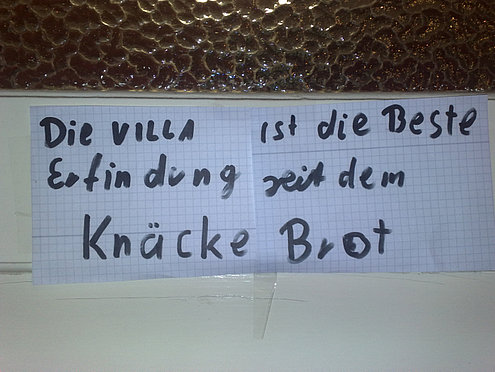 Die VILLA ist die Beste
Erfindung seit dem
Knäcke Brot